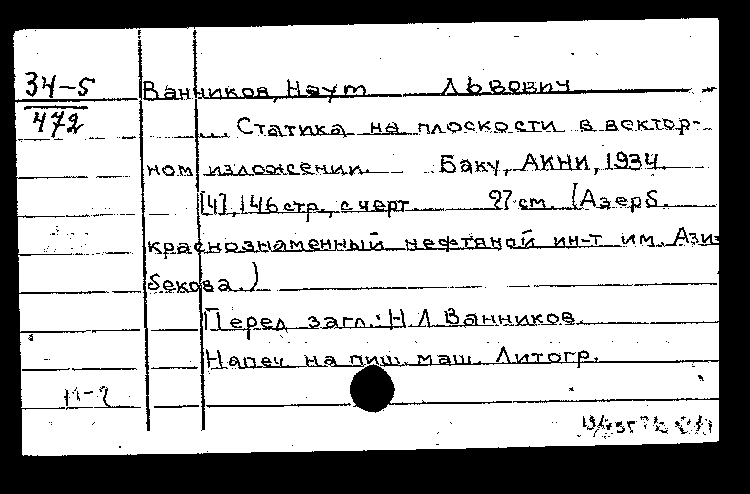 34-5
472
Ванников, Наум Львович
... Статика на плоскости в вектор-
ном изложении. Баку, АКНИ, 1934.
[4], 146 стр., с черт. 27 см. (Азерб.
краснознаменный нефтяной ин-т им. Ази-
бекова.)
Перед загл.: Н.Л Ванников.
Напеч. на пиш. маш. Литогр.